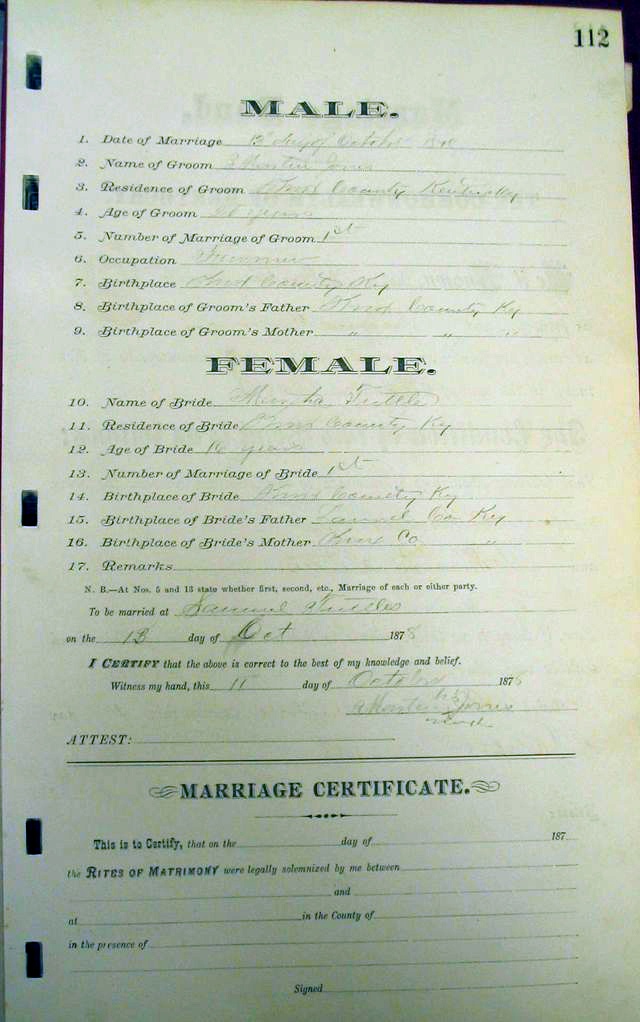 112
MALE.
1. Date of Marriage 13th day of October
2. Name of Groom Jones
3. Residence of Groom Knox County Kentucky
4. Age of Groom 20 years
5. Number of Marriage of Groom 1st
6. Occupation Farmer
7. Birthplace Knox County Ky
8. Birthplace of Groom's Father Knox County Ky
9. Birthplace of Groom's Mother " " "
FEMALE.
10. Name of Bride Tuttle
11. Residence of Bride Knox County Ky
12. Age of Bride 16 years
13. Number of Marriage of Bride 1st
14. Birthplace of Bride Knox County Ky
15. Birthplace of Bride's Father Laurel Co Ky
16. Birthplace of Bride's Mother Knox Co "
17. Remarks
N. B.—At Nos. 5 and 13 state whether first, second, etc., Marriage of each or either party.
To be married at Samuel Tuttles
on the 13 day of Oct 1878
I CERTIFY that the above is correct to the best of my knowledge and belief.
Witness my hand, this 11 day of October 1878
Jones
ATTEST:
MARRIAGE CERTIFICATE.
This is to Certify, that on the day of 187
the RITES OF MATRIMONY were legally solemnized by me between
and
at in the County of
in the presence of
Signed